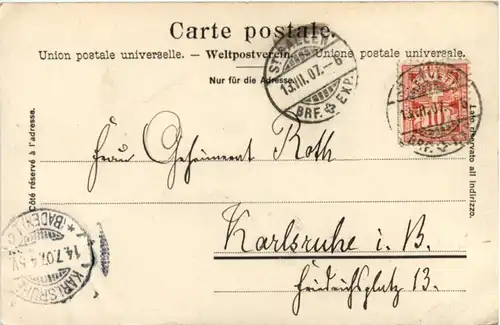 Carte postale.
Union postale universelle. – Weltpostverein. – Unione postale universale.
Nur für die Adresse.
ST. GALLEN
13.VII.07.–6
BRF. EXP.
13.VII.07.
BRF.
Côté réservé à l'adresse.
Lato riservato all indirizzo.
Frau Geheimrat Roth
Karlsruhe i. B.
Friedrichsplatz 13.
KARLSRUHE
14.7.07.
(BADEN)